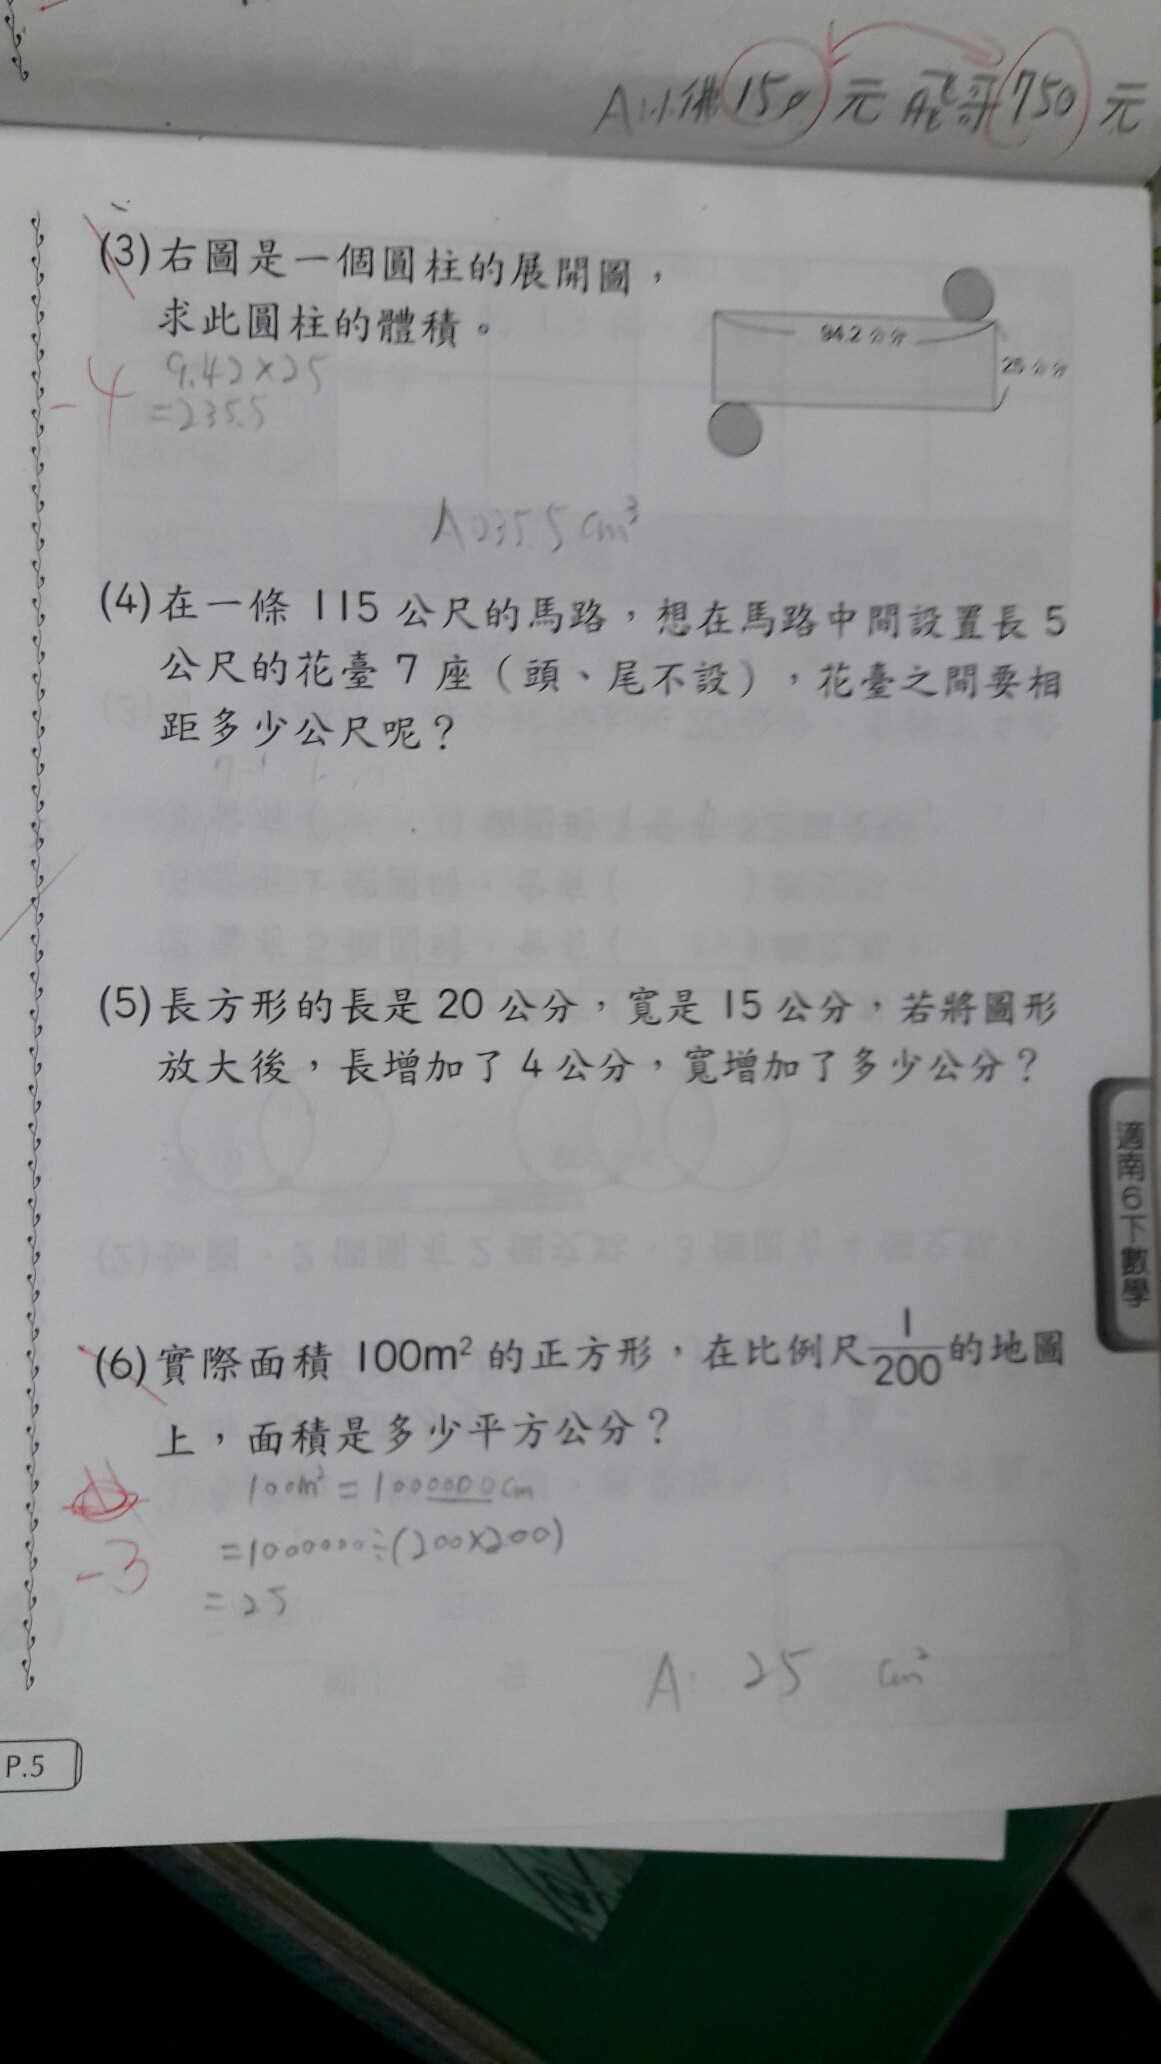 A:小佛150元 胖哥750元
(3)右圖是一個圓柱的展開圖，
求此圓柱的體積。
94.2公分
25公分
9.42×25
=235.5
-4
A 235.5 cm³
(4)在一條 115 公尺的馬路，想在馬路中間設置長 5
公尺的花臺 7 座（頭、尾不設），花臺之間要相
距多少公尺呢？
(5)長方形的長是 20 公分，寬是 15 公分，若將圖形
放大後，長增加了 4 公分，寬增加了多少公分？
(6)實際面積 100m² 的正方形，在比例尺 1/200 的地圖
上，面積是多少平方公分？
100m² = 1000000cm
=1000000÷(200×200)
-3
= 25
A: 25 cm²
適南6下數學
P.5